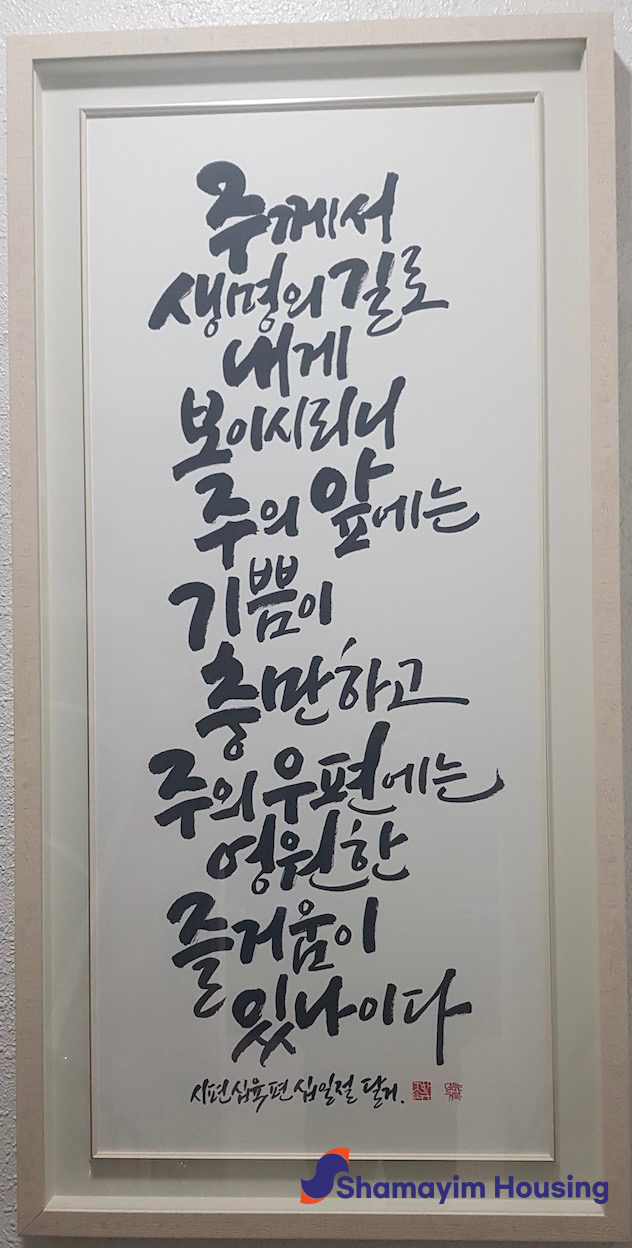 주께서
생명의 길로
내게
보이시리니
주의 앞에는
기쁨이
충만하고
주의 우편에는
영원한
즐거움이
있나이다
시편 십육편 십일절 달기.
Shamayim Housing